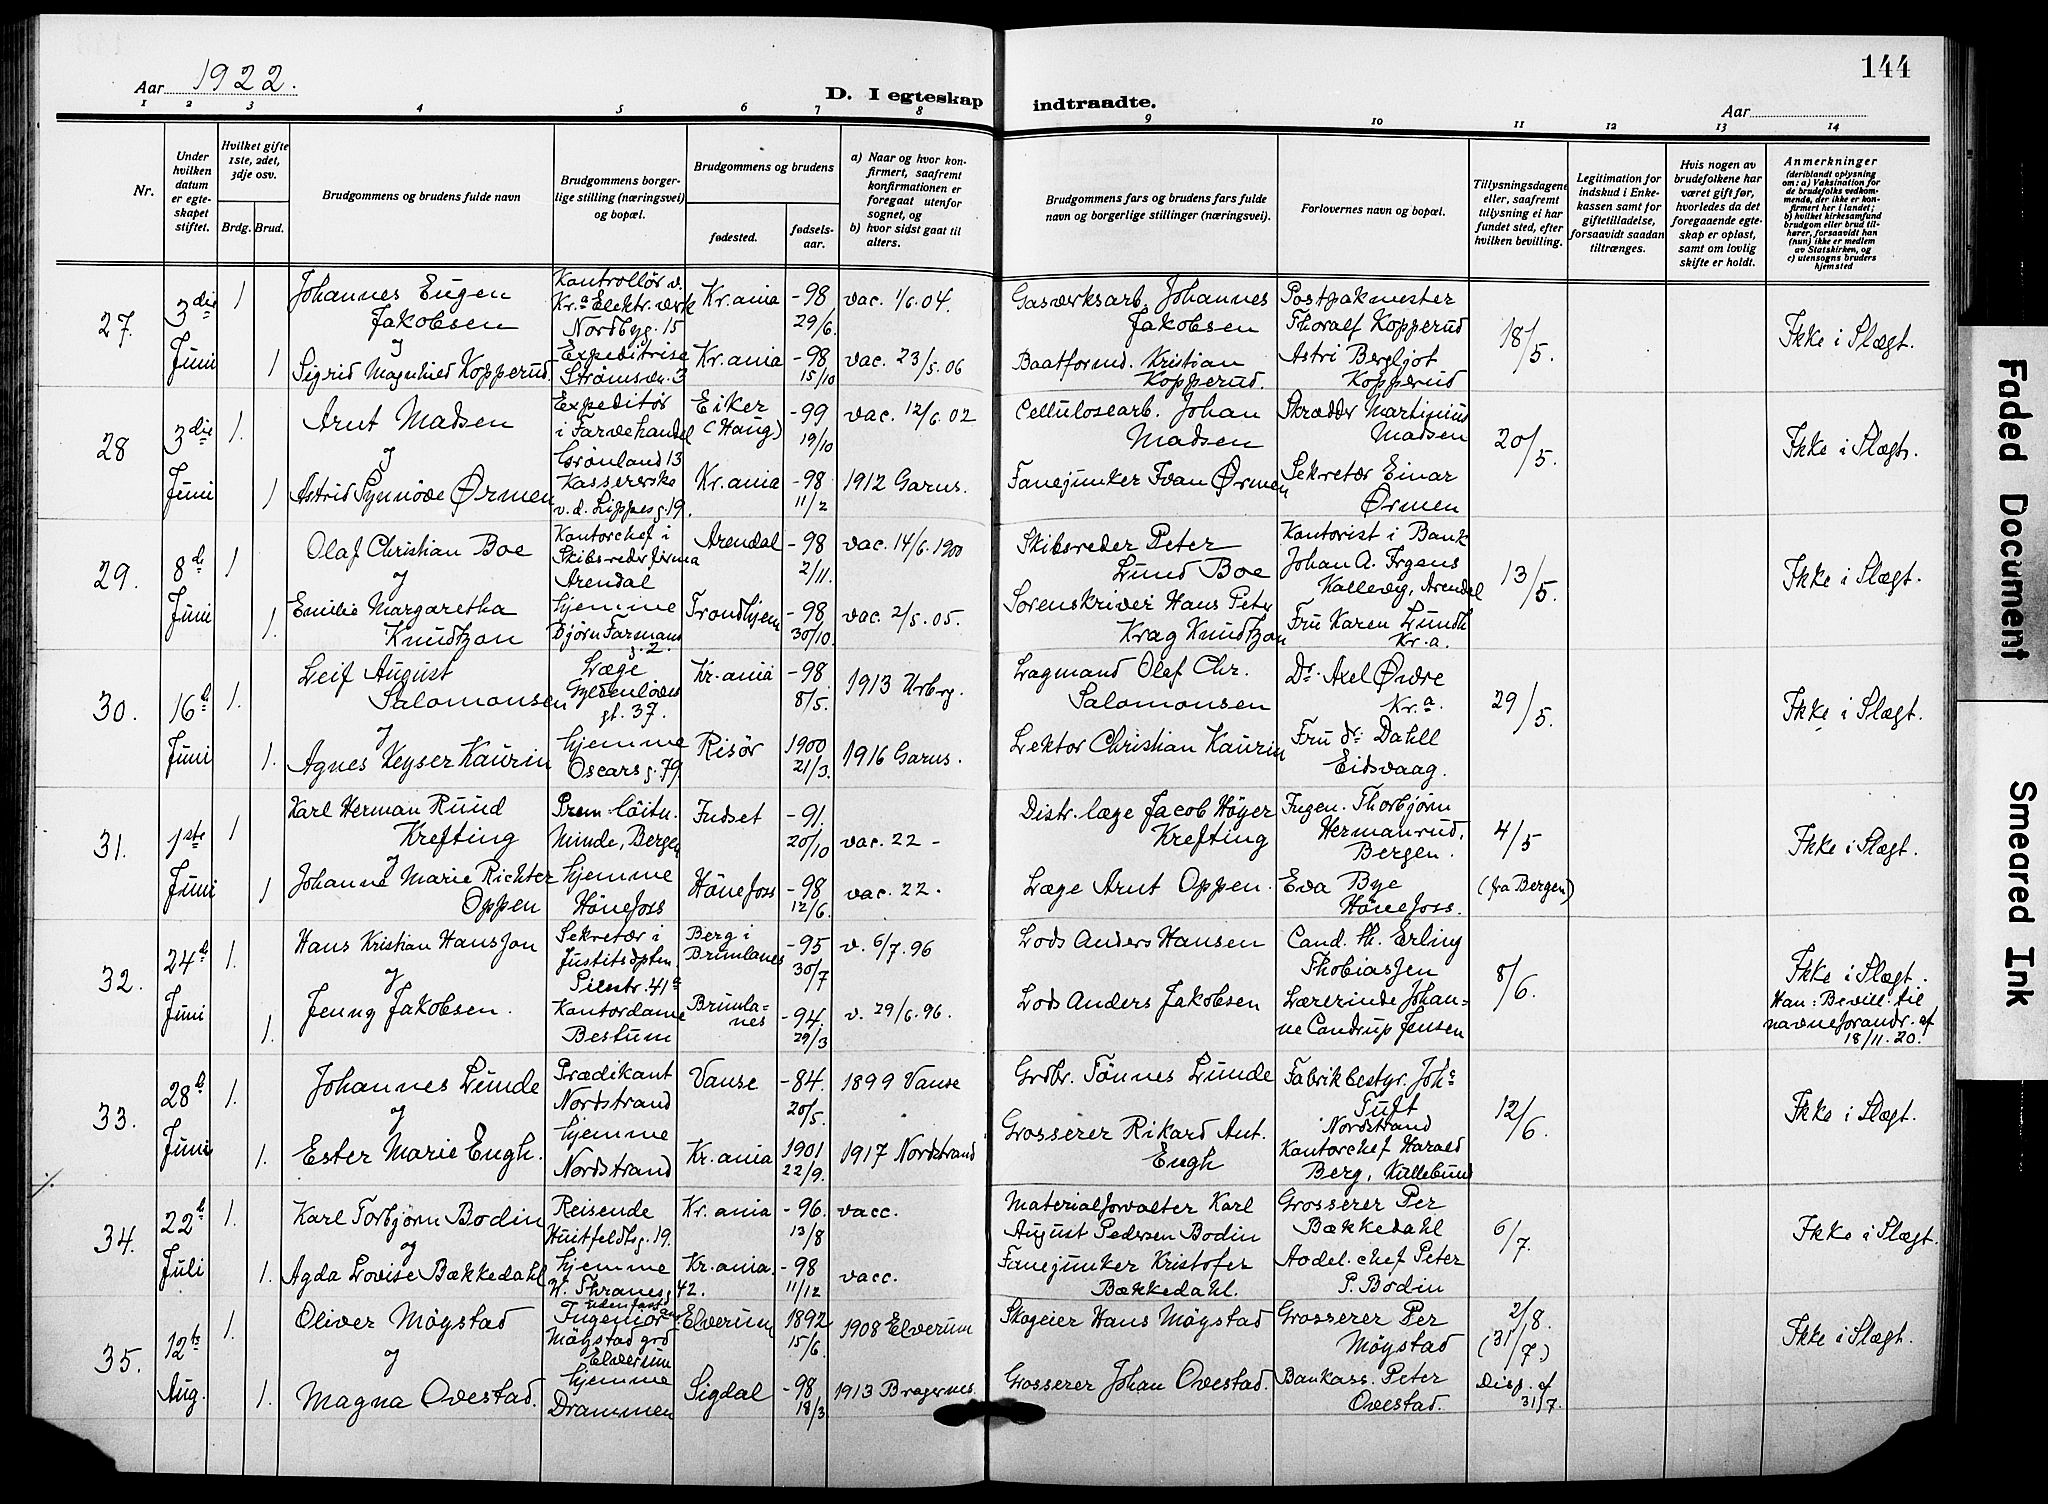 144
Aar 1922.
D. I egteskap indtraadte.
Aar
1 2 3 4 5 6 7 8 9 10 11 12 13 14
Nr.
Under hvilken datum er egteskapet stiftet.
Hvilket gifte 1ste, 2det, 3dje osv.
Brdg. Brud.
Brudgommens og brudens fulde navn
Brudgommens borgerlige stilling (næringsvei) og bopæl.
Brudgommens og brudens
fødested.
fødselsaar.
a) Naar og hvor konfirmert, saafremt konfirmationen er foregaat utenfor sognet, og
b) hvor sidst gaat til alters.
Brudgommens fars og brudens fars fulde navn og borgerlige stillinger (næringsvei).
Forlovernes navn og bopæl.
Tillysningsdagene eller, saafremt tillysning ei har fundet sted, efter hvilken bevilling.
Legitimation for indskud i Enkekassen samt for giftetilladelse, forsaavidt saadan tiltrænges.
Hvis nogen av brudefolkene har været gift før, hvorledes da det foregaaende egteskap er opløst, samt om lovlig skifte er holdt.
Anmerkninger (deriblandt oplysning om: a) Vaksination for de brudefolks vedkommende, der ikke er konfirmert her i landet; b) hvilket kirkesamfund brudgom eller brud tilhører, forsaavidt han (hun) ikke er medlem av Statskirken, og c) utensogns bruders hjemsted
27. 3die Juni 1 Johannes Eugen Jakobsen Kontrollør v. Kr.a Elektr. værk Nordbyg. 15 Kr.ania -98 29/6. vac. 1/6. 04. Gasværksarb. Johannes Jakobsen Postpakmester Thoralf Kopperud 18/5. Ikke i Slægt.
og
1 Sigrid Magnhild Kopperud. Expeditrise Strømsvn. 3 Kr.ania -98 15/10 vac. 23/5. 06 Baatformd. Kristian Kopperud. Astri Bergljot Kopperud
28 3die Juni 1. Arnt Madsen Expeditør i Farvehandel Grønland 13 Eiker (Haug) -99 19/10 vac. 12/6. 02 Cellulosearb. Johan Madsen Skrædder Martinius Madsen 20/5. Ikke i Slægt.
og
1 Astrid Synnøve Ørmen Kassererske v. d. Lippes g. 19. Kr.ania -98 11/2 1912 Garns. Fanejunker Ivan Ørmen Sekretær Einar Ørmen
29. 8d Juni 1 Olaf Christian Boe Kontorchef i Skibsrederfirma Arendal Arendal -98 2/11. vac. 14/6. 1900 Skibsreder Peter Lund Boe Kontorist i Bank Johan A. Irgens Kallevig, Arendal 13/5. Ikke i Slægt.
og
1. Emilie Margaretha Knudtzon hjemme Bjørn Farmans g. 2. Trondhjem -98 30/10. vac. 2/5. 05. Sorenskriver Hans Peter Krag Knudtzon Fru Karen Lundh Kr.a.
30. 16d Juni 1. Leif August Salomonsen Læge Gyldenløves gt. 37. Kr.ania -98 8/5. 1913 Urbrg. Lagmand Olaf Chr. Salomonsen Dr. Axel Øvdre Kr.a. 29/5. Ikke i Slægt.
og
1. Agnes Keyser Kaurin hjemme Oscars g. 79. Risør 1900 21/3. 1916 Garns. Lektor Christian Kaurin Fru dr. Dahll Eidsvaag.
31. 1ste Juni 1 Karl Herman Ruud Krefting Prem. løitn. Minde, Bergen Indset -91. 20/10 vac. 22 - Distr. læge Jacob Høyer Krefting Ingen. Thorbjørn Hermanrud. Bergen. 4/5 (fra Bergen) Ikke i Slægt.
og
1 Johanne Marie Richter Oppen hjemme Hønefoss Hønefoss -98 12/6. vac. 22. Læge Arnt Oppen. Eva Bye Hønefoss.
32. 24d Juni 1. Hans Kristian Hansson Sekretær i Justitsdptm Pilestr. 41 Berg i Brunlanes -95 30/7 v. 6/7. 96 Lods Anders Hansen Cand. th. Erling Thobiassen 8/6. Ikke i Slægt. Han: Bevill. til navneforandr. af 18/11. 20.
og
1. Jenny Jakobsen. Kontordame Bestum Brunlanes -94. 29/3 v. 29/6. 96. Lods Anders Jakobsen Lærerinde Johanne Candrup Jensen
33. 28d Juni 1. Johannes Lunde Prædikant Nordstrand Vanse -84. 20/5. 1899 Vanse Grdbr. Tønnes Lunde Fabrikbestyr. Johs Tuft Nordstrand 12/6. Ikke i Slægt.
og
1. Ester Marie Engh. hjemme Nordstrand Kr.ania 1901 22/9. 1917 Nordstrand Grosserer Rikard Ant. Engh Kontorchef Harald Berg, Kullebund
34. 22d Juli 1. Karl Torbjørn Bodin Reisende Huitfeldtsg. 19. Kr.ania -96. 13/8 vacc. Materialforvalter Karl August Pedersen Bodin Grosserer Per Bækkedahl 6/7. Ikke i Slægt.
og
1. Agda Lovise Bækkedahl hjemme W. Thranesg. 42. Kr.ania. -98 11/12 vacc. Fanejunker Kristofer Bækkedahl. Avdel. chef Peter P. Bodin
35. 12te Aug. 1. Oliver Møystad Ingeniør Møystad grd Elverum Elverum 1892 15/6. 1908 Elverum Skogeier Hans Møystad Grosserer Per Møystad 2/8. (31/7) Disp. af 31/7. Ikke i Slægt.
og
1. Magna Ovestad. hjemme Drammen Sigdal -98 18/3 1913 Bragernes. Grosserer Johan Ovestad. Bankass. Peter Ovestad.
Faded Document
Smeared Ink